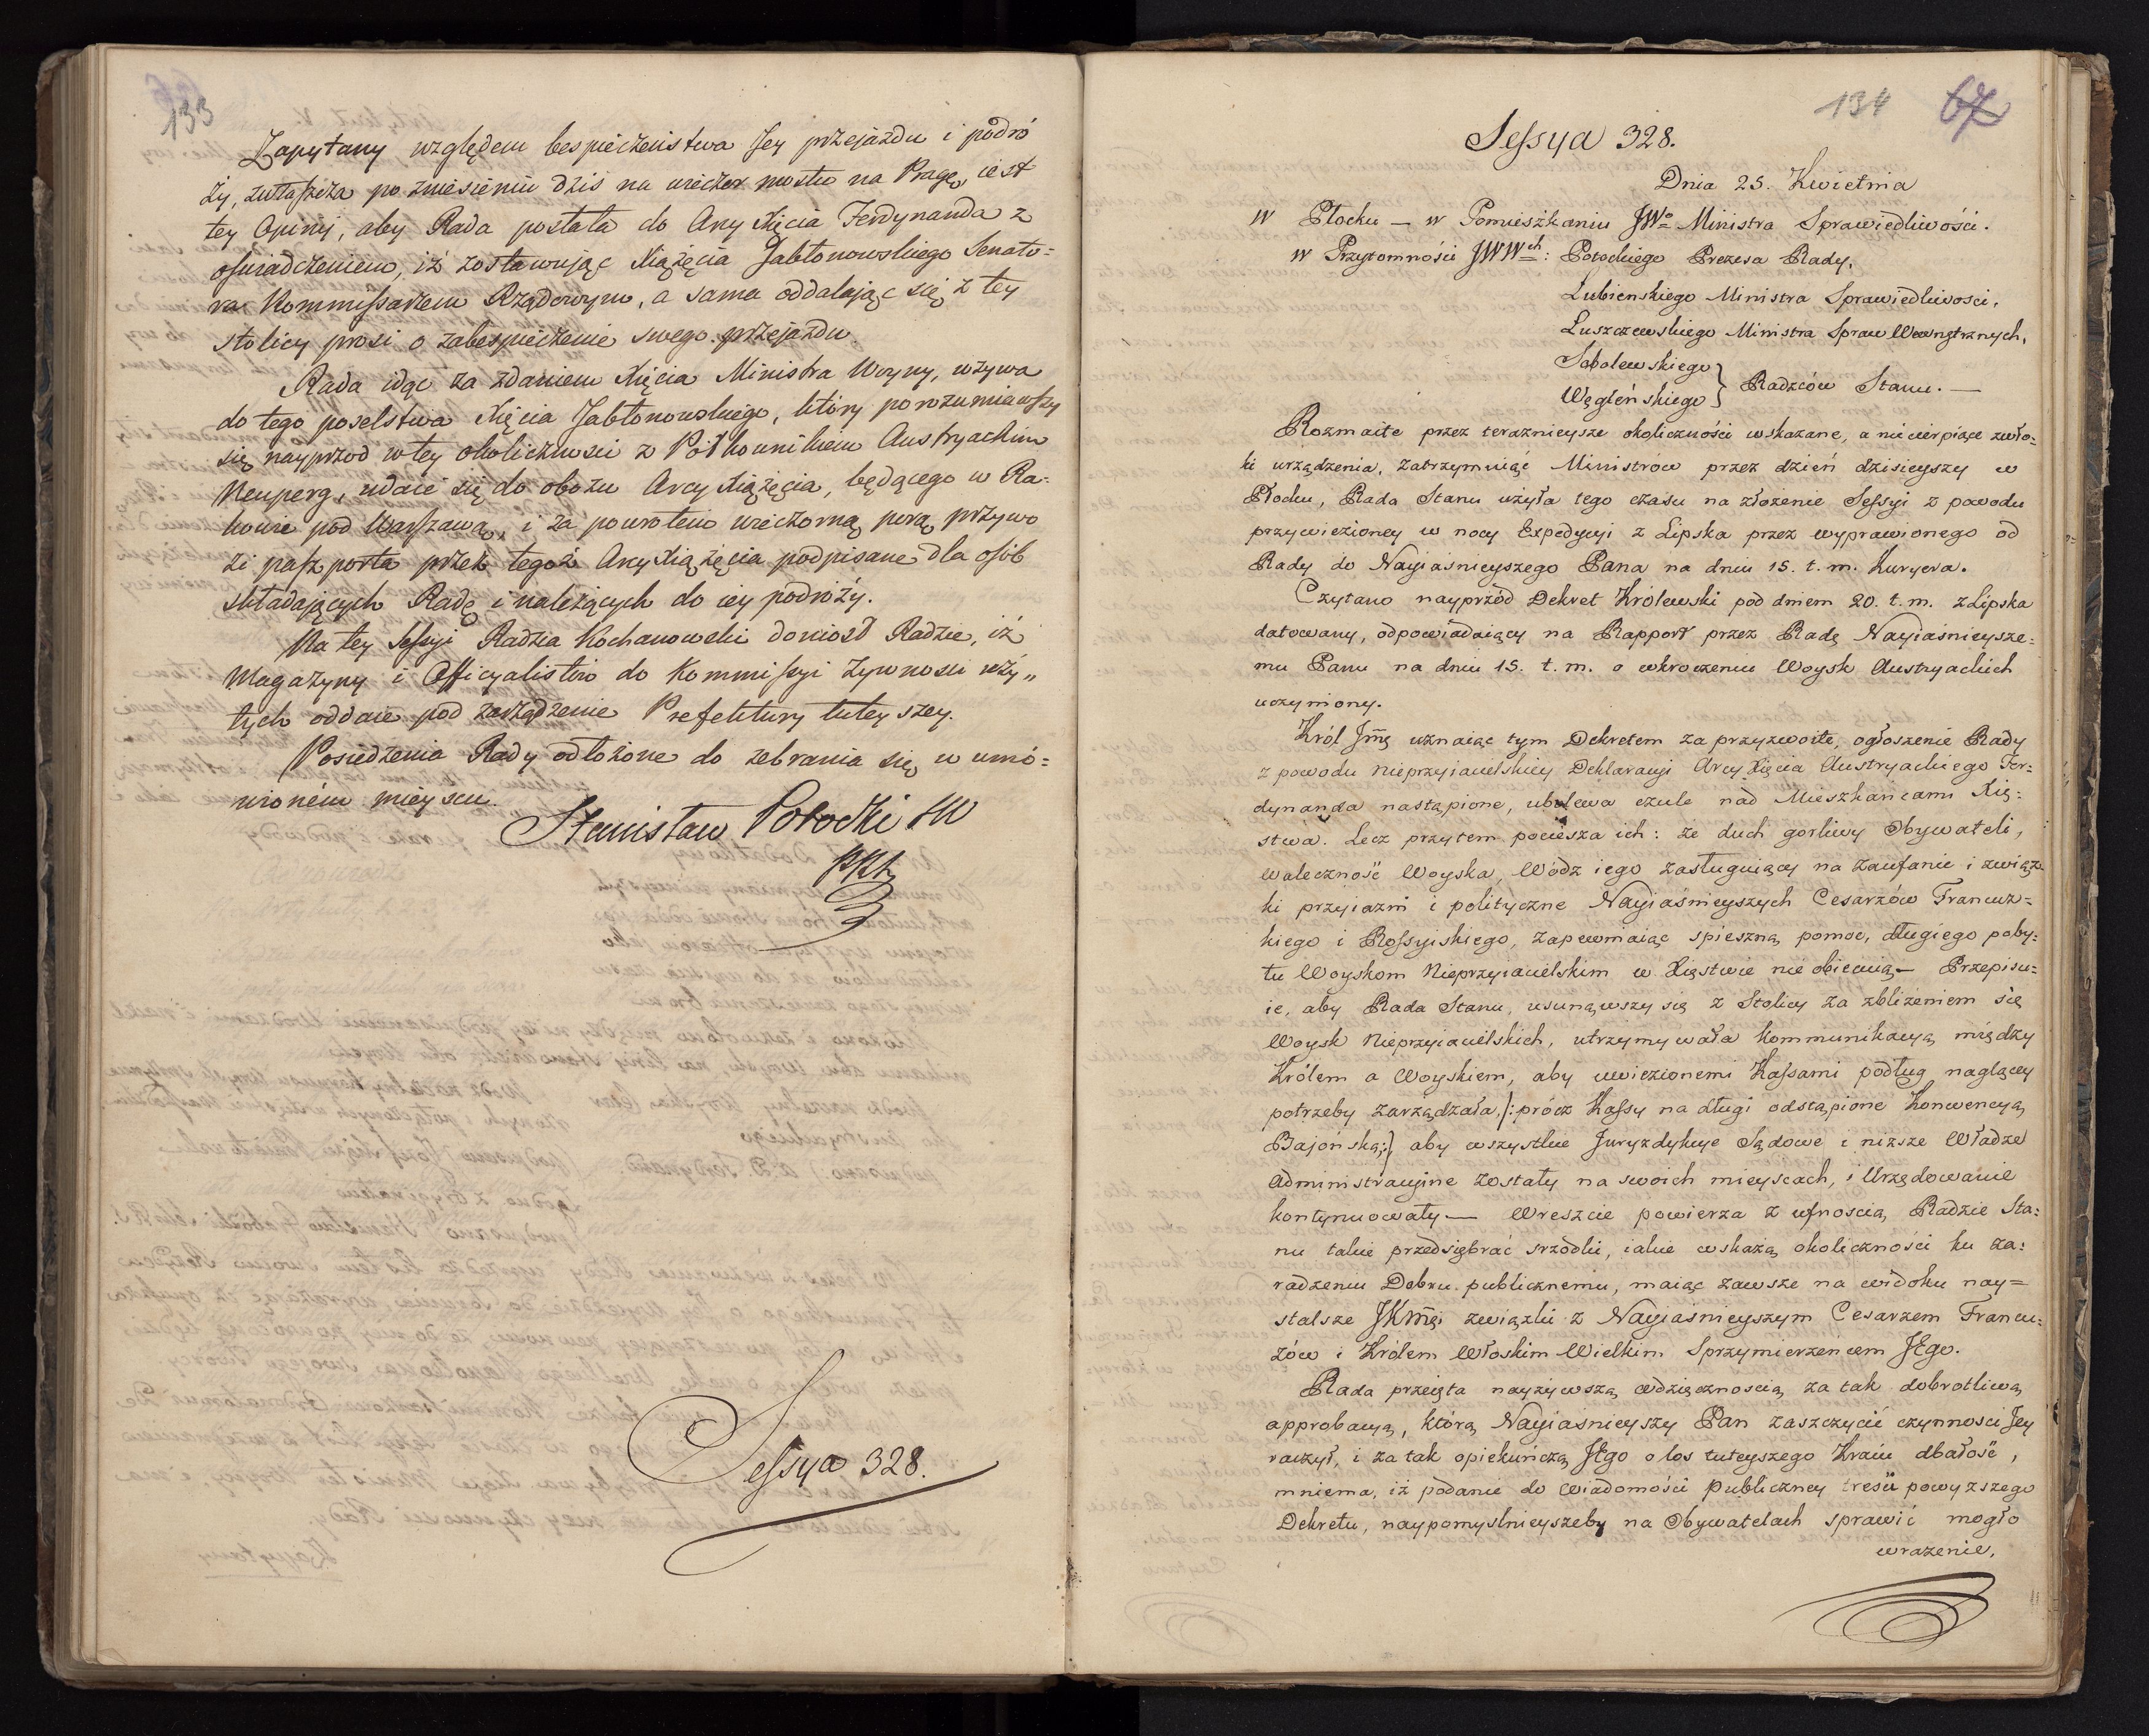 133
Zapytany względem bespieczeństwa Jey przejazdu i podró
ży, zwłaszcza po zniesieniu dziś na wieczor mostu na Pragę, iest
tey Opinij, aby Rada posłała do Arcy Xięcia Ferdynanda z
oświadczeniem, iż zostawując Xiążęcia Jabłonowskiego Senato=
ra Kommissarzem Rządowym, a sama oddalając się z tey
stolicy prosi o zabespieczenie swego przejazdu.
Rada idąc za zdaniem Xięcia Ministra Woyny, używa
do tego poselstwa Xięcia Jabłonowskiego, który porozumiawszy
się nayprzod w tey okoliczności z Półkownikiem Austryackim
Neuperg, udaie się do obozu Arcy Xiążęcia, będącego w Ra=
kowie pod Warszawą, i za powrotem wieczorną porą przywo
zi paszporta przez tegoż Arcy Xiążęcia podpisane dla osób
składających Radę i należących do iey podróży.
Na tey Sessyi Radzca Kochanowski doniosł Radzie, iż
Magazyny i Officyalistów do Kommissyi Żywności uży„
tych oddaie pod zarządzenie Prefektury tuteyszey.
Posiedzenia Rady odłożone do zebrania się w umó=
wioném mieyscu.
Stanisław Potocki SW
PRM
Sessya 328.
134 67
Sessya 328.
Dnia 25. Kwietnia
W Płocku — w Pomieszkaniu JWo Ministra Sprawiedliwości.
w Przytomności JWWch: Potockiego Prezesa Rady,
Lubienskiego Ministra Sprawiedliwości,
Luszczewskiego Ministra Spraw Wewnętrznych,
Sobolewskiego
Węgleńskiego } Radzców Stanu. —
Rozmaite przez teraznieysze okoliczności wskazane, a niecierpiące zwło=
ki urządzenia, zatrzymuiąć Ministrów przez dzień dzisieyszy w
Płocku, Rada Stanu użyła tego czasu na złożenie Sessyi z powodu
przywiezioney w nocy Expedycyi z Lipska przez wyprawionego od
Rady do Nayiaśnieyszego Pana na dniu 15. t. m. Kuryera.
Czytano nayprzód Dekret Królewski pod dniem 20. t. m. z Lipska
datowany, odpowiadaiący na Rapport przez Radę Nayiaśnieysze=
mu Panu na dniu 15. t. m. o wkroczeniu Woysk Austryackich
uczyniony.
Król Jmę uznaiąc tym Dekretem za przyzwoite, ogłoszenie Rady
z powodu nieprzyiacielskiey Deklaracyi Arcy Xięcia Austryackiego Fer=
dynanda nastąpione, ubolewa czule nad Mieszkańcami Xię=
stwa. Lecz przytem pociesza ich: że duch gorliwy Obywateli,
waleczność Woyska, Wódz iego zasługuiący na zaufanie i związ
ki przyiazni i polityczne Nayiaśnieyszych Cesarzów Francuz=
kiego i Rossyiskiego, zapewniaiąc spieszną pomoc, długiego poby=
tu Woyskom Nieprzyiacielskim w Xięstwie nie obiecuią — Przepisu=
ie, aby Rada Stanu, usunąwszy się z Stolicy za zbliżeniem się
Woysk Nieprzyiacielskich, utrzymywała kommunikacyą między
Królem a Woyskiem, aby uwiezionemi Kassami podług naglącey
potrzeby zarządzała, /: prócz Kassy na długi odstąpione Konwencyą
Bajońską :/ aby wszystkie Juryzdykcye Sądowe i niższe Władze
Administracyine zostały na swoich mieyscach, i Urzędowanie
kontynuowały — Wreszcie powierza z ufnoscią Radzie Sta=
nu takie przedsiębrać srzodki, iakie wskażą okoliczności ku za=
radzeniu Dobru publicznemu, maiąc zawsze na widoku nay=
stalsze JKMę związki z Nayiaśnieyszym Cesarzem Francu=
zów i Królem Włoskim Wielkim Sprzymierzeńcem JEgo.
Rada przeięta nayżywszą wdzięcznoscią za tak dobrotliwą
approbacyą, którą Nayiaśnieyszy Pan zaszczycić czynnosci Jey
raczył, i za tak opiekuńczą JEgo o los tuteyszego Kraiu dbałość,
mniema, iż podanie do wiadomości publiczney tresci powyzszego
Dekretu, naypomyslnieyszeby na Obywatelach sprawić mogło
wrazenie,